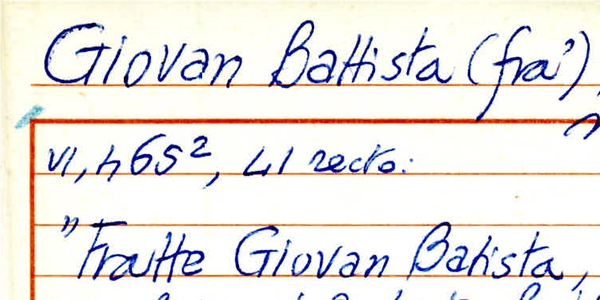 Giovan Battista (fra')
VI, 465², 41 recto:
"Fratte Giovan Batista,